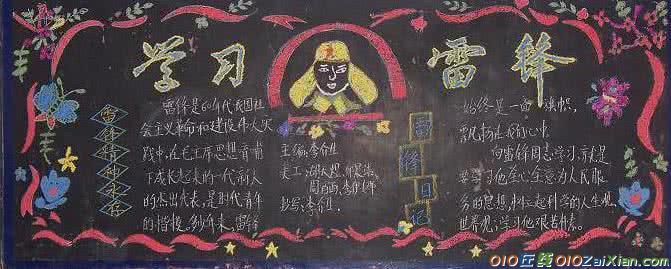 学习
雷锋
雷锋精神永存
雷锋是60年代我国社
会主义革命和建设伟大实
践中,在毛主席思想哺育
下成长起来的一代新人
的杰出代表,是时代青年
的楷模。多少年来,雷锋
主编:李
美工:
抄写:李
雷锋日记
始终是一面旗帜,
飘扬在我们心中。
向雷锋同志学习,就是
要学习他全心全意为人民服
务的思想,树立起科学的人生观,
世界观;学习他艰苦朴素。
010在线 010ZaiXian.com